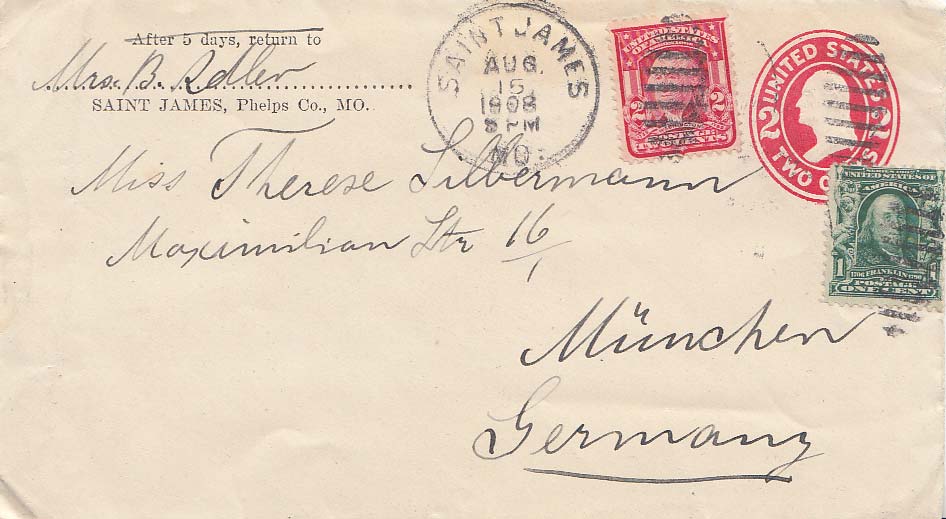 After 5 days, return to
Mrs. B. Adler
SAINT JAMES, Phelps Co., MO.
SAINT JAMES
AUG.
15
1908
PM
MO.
UNITED STATES
OF AMERICA
2 2
POSTAGE
TWO CENTS
UNITED STATES
2 2
TWO
UNITED STATES OF
AMERICA
1
1706 FRANKLIN 1790
POSTAGE
ONE CENT
Miss Therese Silbermann
Maximilian Str 16/1
München
Germany